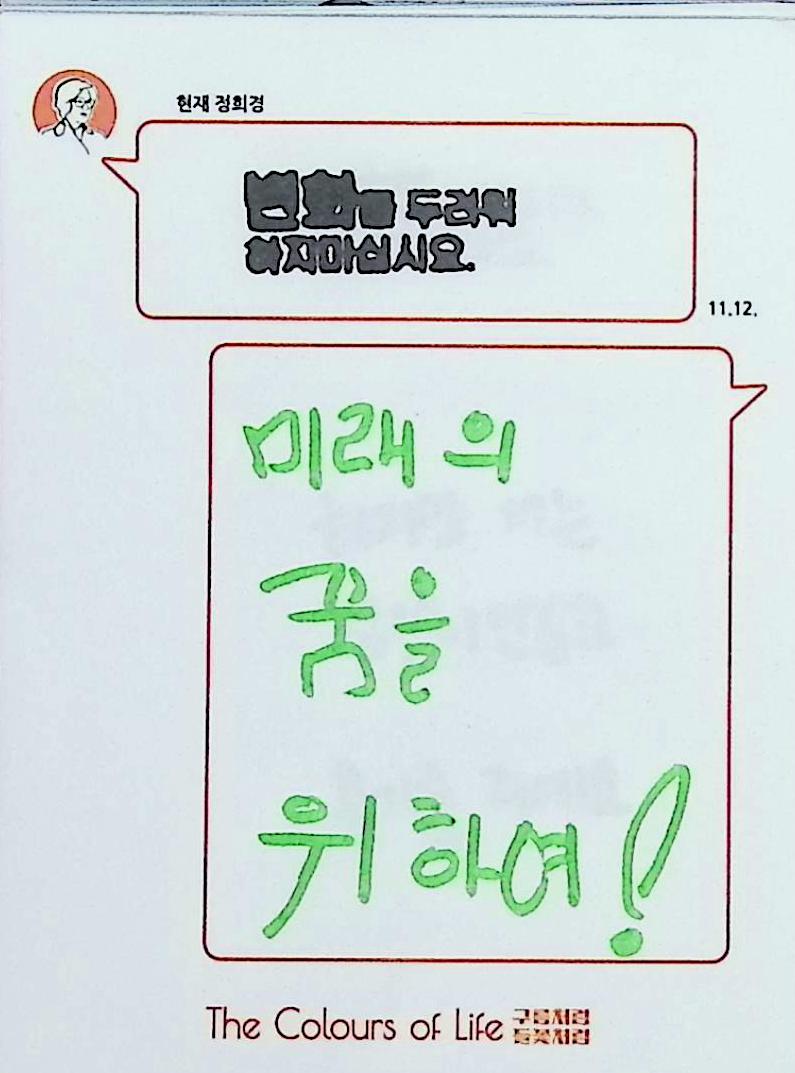 현재 정희경
변화를 두려워
하지마십시요.
11.12.
미래의
꿈을
위하여!
The Colours of Life 구름처럼
들꽃처럼